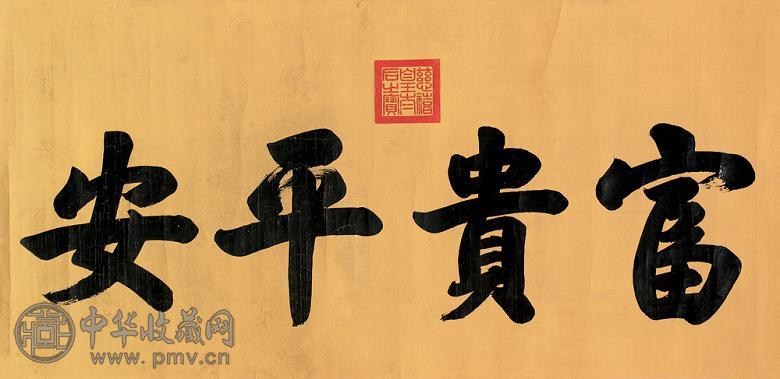 慈禧皇太后之寶
富貴平安
中华收藏网
www.pmv.cn